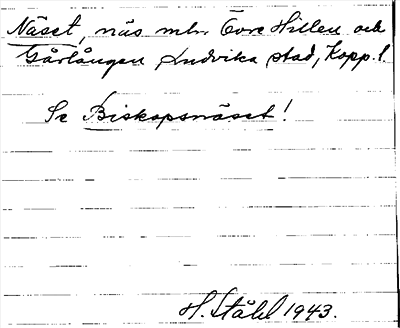 Näset, näs mln Övre Hillen och
Gårlången Ludvika stad, Kopp. l.
Se Biskopsnäset!
H. Ståhl 1943.